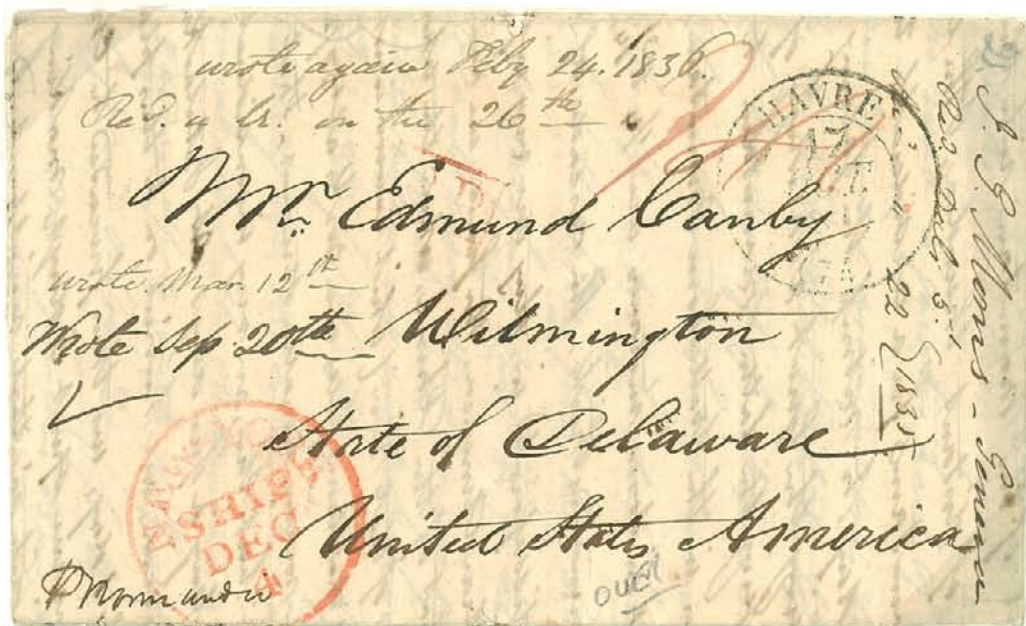 wrote again Feby 24. 1836.
Recd. a lr. on the 26th
HAVRE
17
Mr. Edmund Canby
wrote Mar. 12th
Wrote Sep 20th Wilmington
State of Delaware
United States America
NEW YORK
SHIP
DEC
4
P Normandie
over
S. G. Morris - Geneva
Recd Decb 5.
22 1835